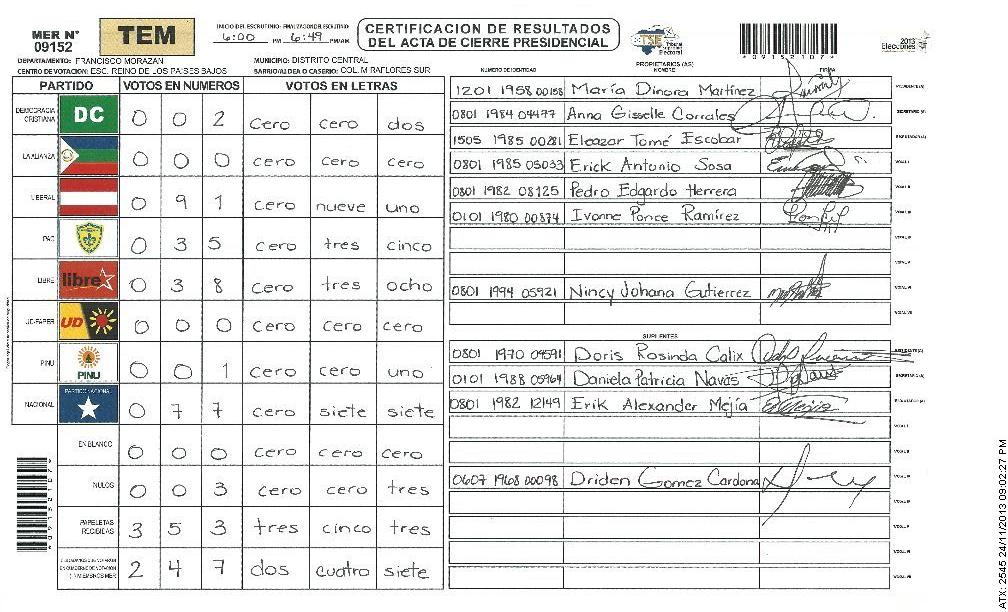 MER N° 09152
TEM
INICIO DEL ESCRUTINIO: FINALIZACION DEL ESCRUTINIO
6:00 PM 6:49 PM/AM
CERTIFICACION DE RESULTADOS
DEL ACTA DE CIERRE PRESIDENCIAL
TSE Tribunal Supremo Electoral
*09152107*
2013
Elecciones
DEPARTAMENTO: FRANCISCO MORAZAN
MUNICIPIO: DISTRITO CENTRAL
CENTRO DE VOTACION: ESC. REINO DE LOS PAISES BAJOS
BARRIO/ALDEA O CASERIO: COL. MIRAFLORES SUR
PARTIDO VOTOS EN NUMEROS VOTOS EN LETRAS
DEMOCRACIA CRISTIANA DC 0 0 2 cero cero dos
LA ALIANZA 0 0 0 cero cero cero
LIBERAL 0 9 1 cero nueve uno
PAC 0 3 5 cero tres cinco
LIBRE libre 0 3 8 cero tres ocho
UD-FAPER UD 0 0 0 cero cero cero
PINU PINU 0 0 1 cero cero uno
NACIONAL PARTIDO NACIONAL 0 7 7 cero siete siete
EN BLANCO 0 0 0 cero cero cero
NULOS 0 0 3 cero cero tres
PAPELETAS RECIBIDAS 3 5 3 tres cinco tres
2 4 7 dos cuatro siete
PROPIETARIOS (AS)
NUMERO DE IDENTIDAD NOMBRE FIRMA
1201 1958 00158 María Dinora Martínez
0801 1984 04477 Anna Gisselle Corrales
1505 1985 00281 Eleazar Tomé Escobar
0801 1985 05033 Erick Antonio Sosa
0801 1982 08125 Pedro Edgardo Herrera
0101 1980 00874 Ivonne Ponce Ramírez
0801 1994 05921 Nincy Johana Gutierrez
SUPLENTES
0801 1970 09591 Doris Rosinda Calix
0101 1988 05964 Daniela Patricia Navas
0801 1982 12149 Erik Alexander Mejía
0607 1968 00098 Driden Gomez Cardona
*09152107*
ATX: 2545 24/11/2013 09:02:27 PM